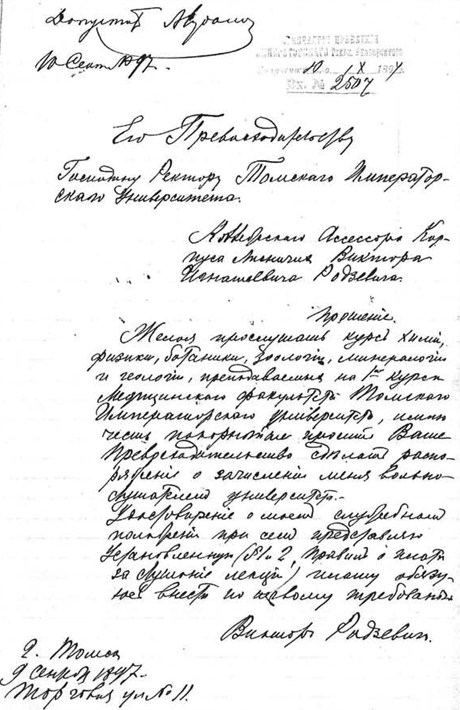 Допустить
10 Сент. 1897.
ИМПЕРАТОРСКАГО Томск. Университета
10 IX 1897
Вх. № 2507
Его Превосходительству
Господину Ректору Томскаго Император-
скаго Университета.
Ассессора
Виктора
Игнатьевича Родзевича.
Прошеніе.
Желая прослушать курсъ химіи,
физики, ботаники, зоологіи, минералогіи
и геологіи, преподаваемыя на 1мъ курсѣ
Медицинскаго факультета Томскаго
Императорскаго университета, имѣю
честь покорнѣйше просить Ваше
Превосходительство сдѣлать распо-
ряженіе о зачисленіи меня вольно-
слушателемъ университета.
Удостовѣреніе о моемъ служебномъ
положеніи при семъ представляю
Установленную (§ 2, правилъ о платѣ
за слушаніе лекцій) плату обязу-
юсь внести по первому требованію
Викторъ Родзевичъ.
г. Томскъ
9 сентября 1897.
Торговая ул № 11.